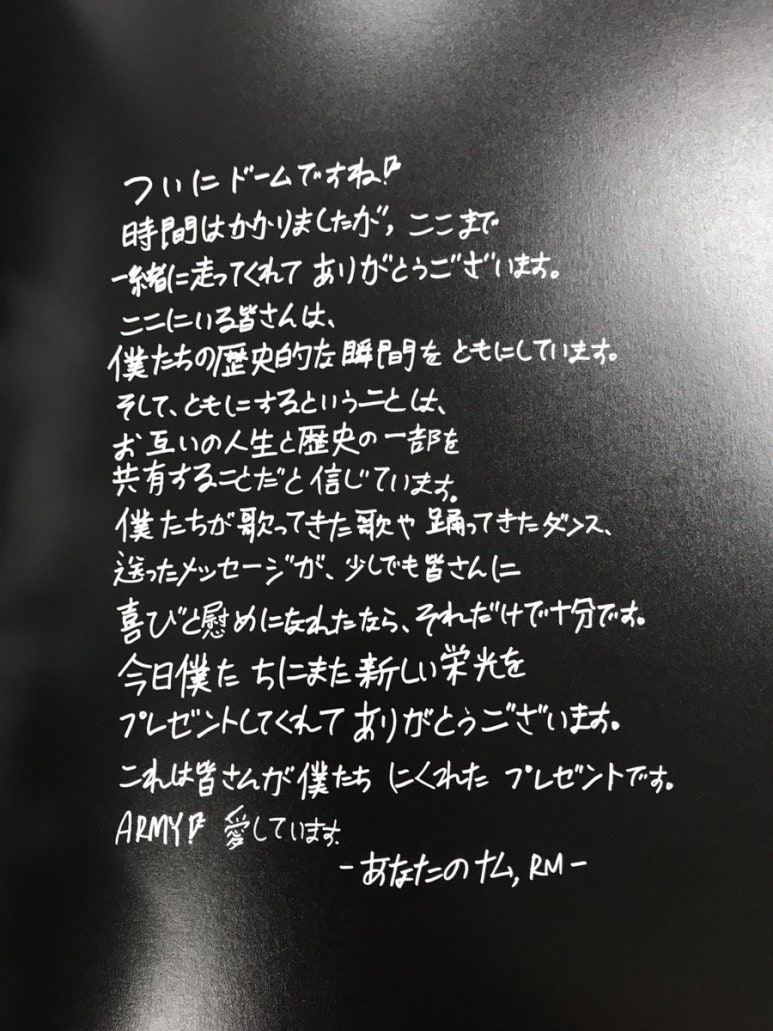 ついにドームですね!!
時間はかかりましたが, ここまで
一緒に走ってくれて ありがとうございます。
ここにいる皆さんは、
僕たちの歴史的な瞬間を ともにしています。
そして、ともにするということは、
お互いの人生と歴史の一部を
共有することだと信じています。
僕たちが歌ってきた歌や 踊ってきたダンス、
送ったメッセージが、少しでも皆さんに
喜びと慰めになれたなら、それだけで十分です。
今日僕たちにまた新しい栄光を
プレゼントしてくれて ありがとうございます。
これは皆さんが僕たちにくれた プレゼントです。
ARMY!! 愛しています.
-あなたのナム, RM-